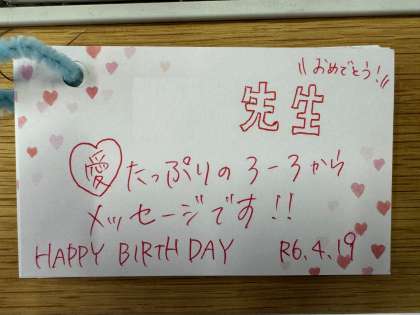 \\おめでとう!//
先生
愛たっぷりの3-3から
メッセージです!!
HAPPY BIRTHDAY R6.4.19